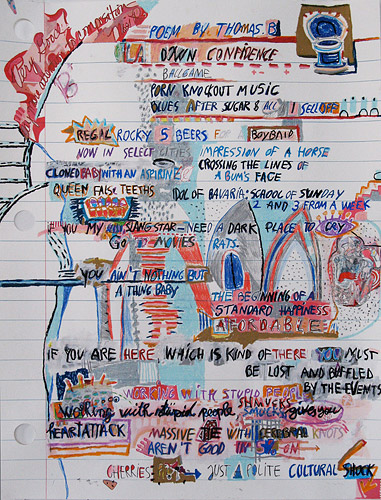 POEM BY THOMAS.B
OWN CONFIDENCE
BALLGAME
PORN KNOCKOUT MUSIC
BLUES AFTER SUGAR & ALL I SELL OFF
REGAL ROCKY 5 BEERS BOYBAND
NOW IN SELECT CITIES IMPRESSION OF A HORSE
CLONED BABY WITH AN ASPIRINE CROSSING THE LINES OF
A BUM'S FACE
QUEEN FALSE TEETHS IDOL OF BAVARIA: SCHOOL OF SUNDAY
2 AND 3 FROM A WEEK
YOU MY SLANG STAR - NEED A DARK PLACE TO CRY
MOVIES RATS.
YOU AIN'T NOTHING BUT
A THING BABY
THE BEGINNING OF A
STANDARD HAPPINESS
AFFORDABLE
IF YOU ARE HERE WHICH IS KIND OF THERE YOU MUST
BE LOST AND BAFFLED
BY THE EVENTS
WORKING WITH STUPID
working with stupid people gives you
HEARTATTACK
MASSIVE WITH CEREBRAL KNOTS
AREN'T GOOD
CHERRIES JUST A POLITE CULTURAL SHOCK